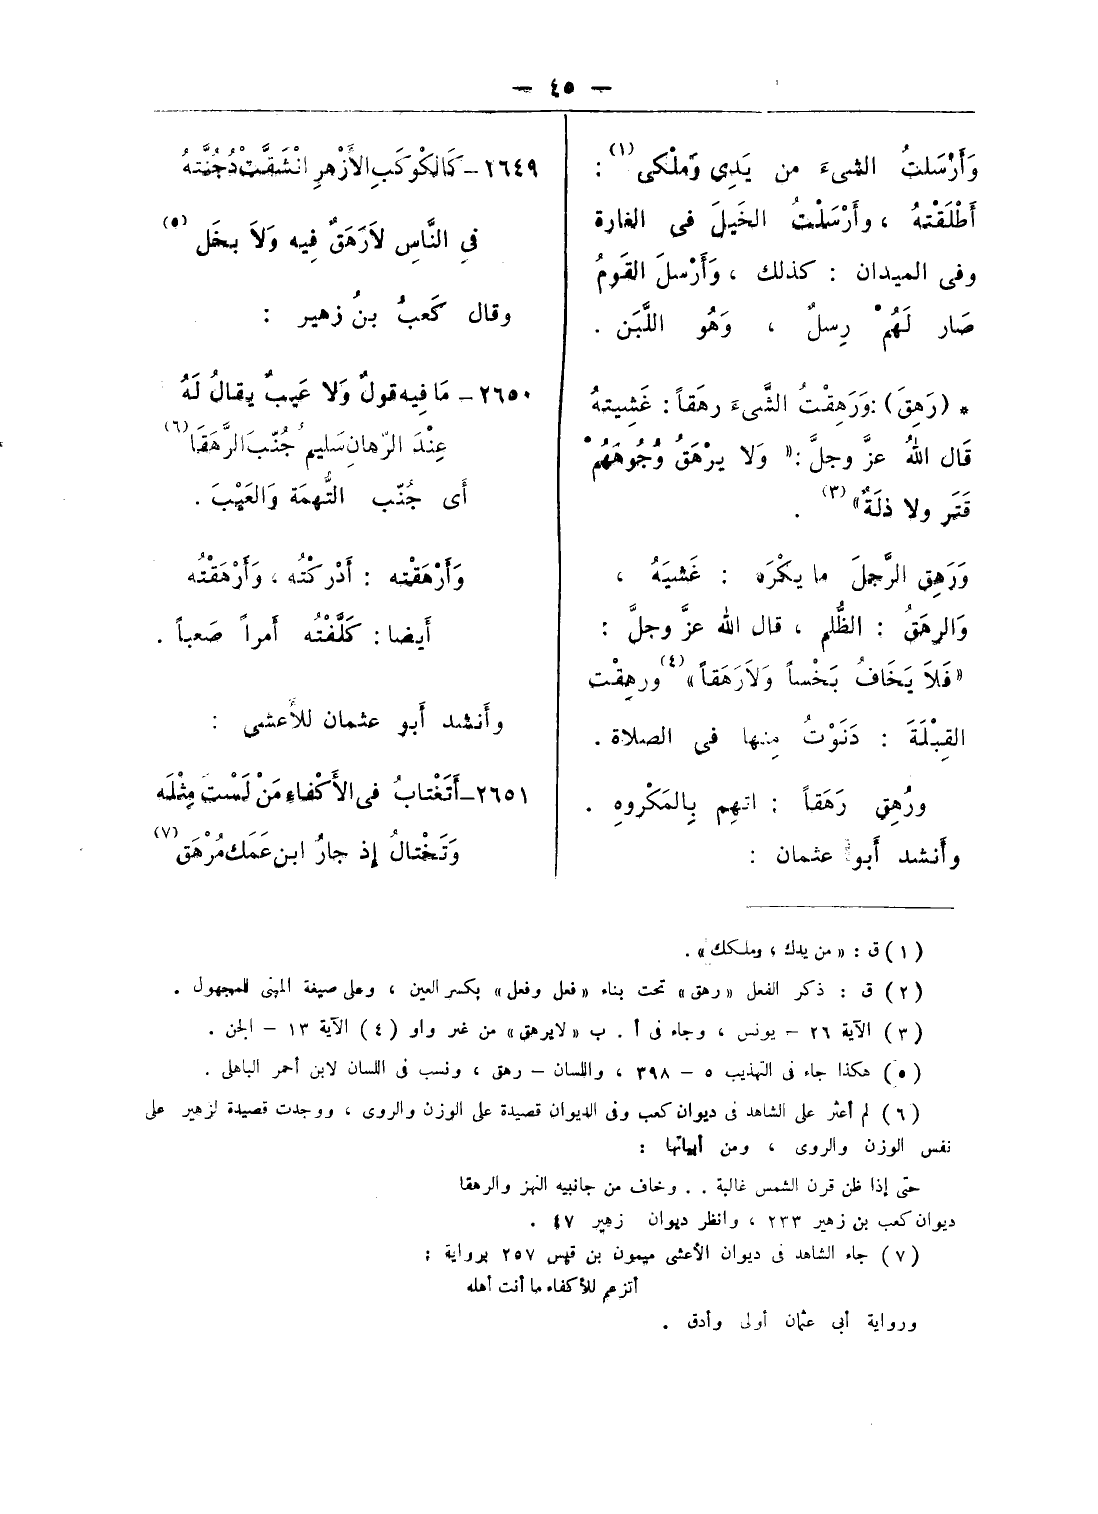 — ٤٥ —
وَأَرْسَلتُ الشىءَ من يَدِي وَملْكى (١) :
أَطْلَقْتهُ ، وأَرْسَلْتُ الخَيلَ فى الغارة
وفى الميدان : كذلك ، وَأَرْسلَ القَومُ
صَار لَهُمْ رِسلٌ ، وَهُو اللَّبَن .
* (رَهِقَ) : وَرَهِقْتُ الشَّىءَ رهَقاً : غَشِيتهُ
قَال اللهُ عزَّ وجلَّ : « وَلا يرْهَقُ وُجُوهَهُمْ
قَتَر ولا ذلَةٌ » (٣) .
وَرَهِق الرَّجلَ ما يكْرَه : غَشيَهُ ،
وَالرهَقُ : الظُّلم ، قال الله عزَّ وجلَّ :
« فَلاَ يَخَافُ بَخْساً وَلاَرَهَقاً » (٤) ورهِقْت
القِبْلَةَ : دَنَوْتُ مِنها فى الصلاة .
ورُهِق رَهَقاً : اتهِم بِالمَكْروهِ .
وأَنشد أَبو عثمان :
٢٦٤٩ – كَالكوْكَبِ الأَزْهرِ انْشَقَّتْ دُجُنَّتهُ
فِى النَّاسِ لاَرَهَقٌ فِيه وَلاَ بخَل (٥)
وقال كَعبُ بنُ زهير :
٢٦٥٠ – مَا فِيه قولٌ وَلا عَيبٌ يقالُ لَهُ
عِنْدَ الرّهانِ سَليم جُنّبَ الرَّهَقَا (٦)
أَى جُنّب التُّهمَة وَالعَيْبَ .
وَأَرْهَقْته : أَدْركْتُه ، وَأَرْهَقْتُه
أَيضا : كَلَّفْتُه أَمراً صَعباً .
وأَنشد أَبو عثمان للأَعشى :
٢٦٥١ – أَتَغْتابُ فى الأَكْفاءِ مَنْ لَسْتَ مِثْلَه
وَتَخْتالُ إِذ جارُ ابن عَمك مُرْهَق (٧)
(١) ق : « من يدك ، وملكك » .
(٢) ق : ذكر الفعل « رهق » تحت بناء « فعل وفعل » بكسر العين ، وعلى صيغة المبنى للمجهول .
(٣) الآية ٢٦ – يونس ، وجاء فى أ . ب « لايرهق » من غير واو (٤) الآية ١٣ – الجن .
(٥) هكذا جاء فى التهذيب ٥ – ٣٩٨ ، واللسان – رهق ، ونسب فى اللسان لابن أحمر الباهلى .
(٦) لم أعثر على الشاهد فى ديوان كعب وفى الديوان قصيدة على الوزن والروى ، ووجدت قصيدة لزهير على
نفس الوزن والروى ، ومن أبياتها :
حتى إذا ظن قرن الشمس غالبة . . وخاف من جانبيه النهز والرهقا
ديوان كعب بن زهير ٢٣٣ ، وانظر ديوان زهير ٤٧ .
(٧) جاء الشاهد فى ديوان الأعشى ميمون بن قيس ٢٥٧ برواية :
أتزعم للأكفاء ما أنت أهله
ورواية أبى عثمان أولى وأدق .